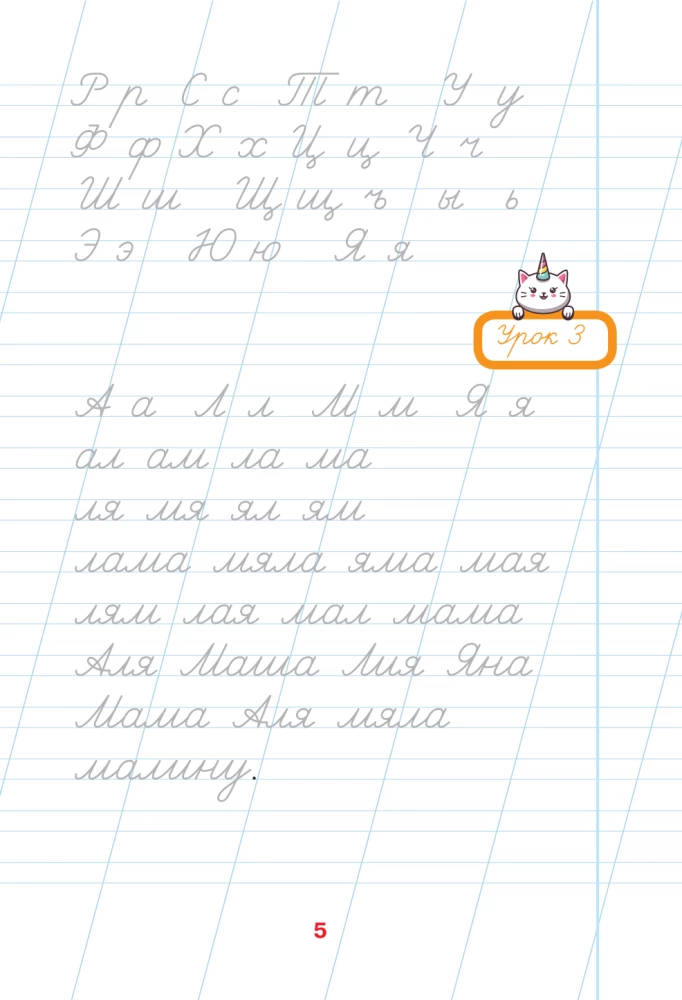 Р р С с Т т У у
Ф ф Х х Ц ц Ч ч
Ш ш Щ щ ъ ы ь
Э э Ю ю Я я
Урок 3
А а Л л М м Я я
ал ам ла ма
ля мя ял ям
лама мяла яма мая
лям лая мал мама
Аля Маша Лия Яна
Мама Аля мяла
малину.
5